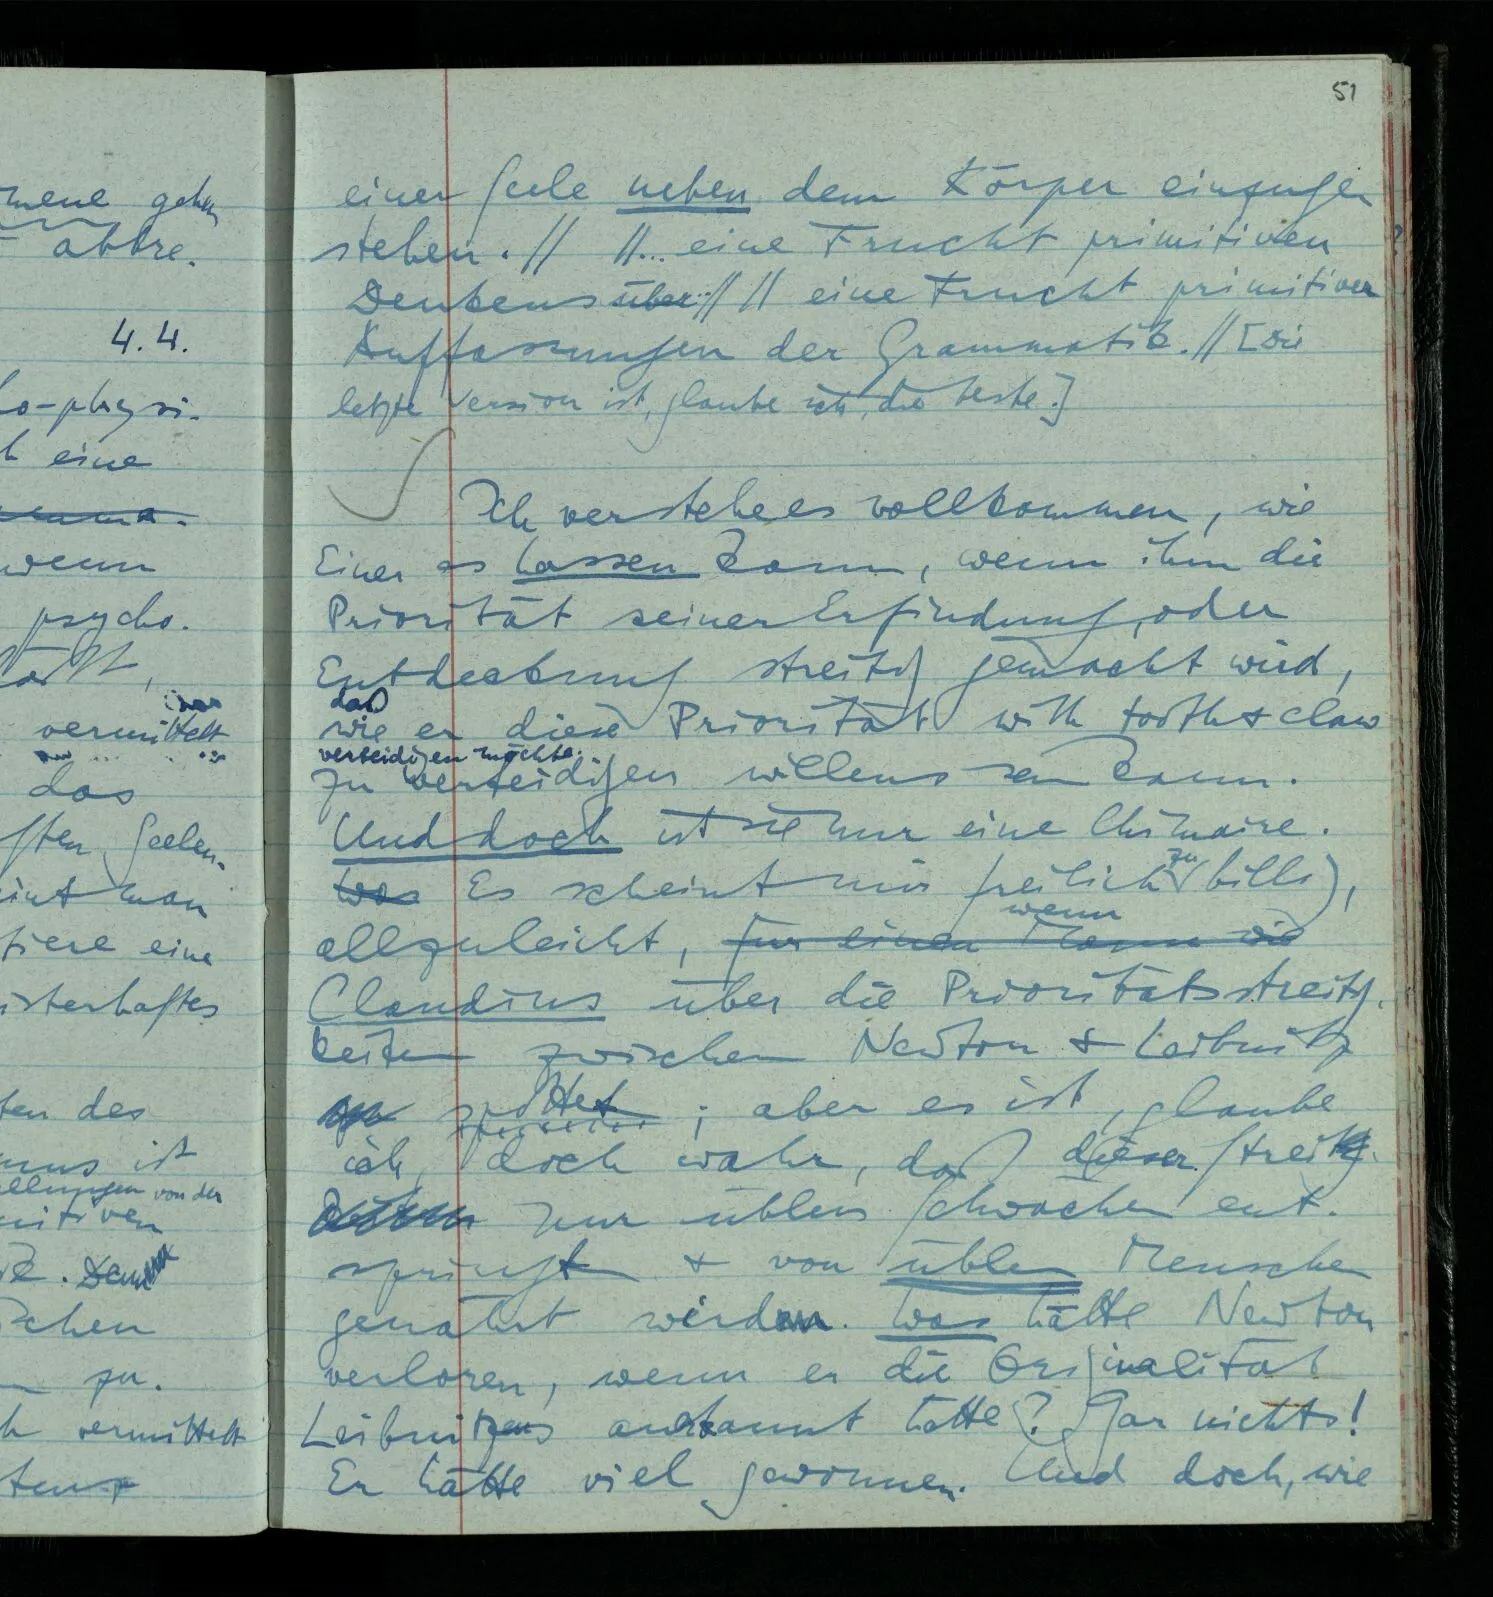 mene gehen
abbre.
4.4.
o-physi-
eine
wenn
psycho.
vermittelt
das
ften Seelen-
eint man
tiere eine
isterhaftes
ten des
mus ist
ellungen von der
mitiven
chen
zu.
h vermittelt
51
einer Seele neben dem Körper einzugestehen
stehen. // //... eine Frucht primitiven
Denkens über.// // eine Frucht primitiver
Auffassungen der Grammatik. // [Die
letzte Version ist, glaube ich, die beste.]
Ich verstehe es vollkommen, wie
Einer es hassen kann, wenn ihm die
Priorität seiner Erfindung, oder
Entdeckung streitig gemacht wird,
daß
wie er diese Priorität with tooth & claw
verteidigen möchte.
zu verteidigen willens sein kann.
Und doch ist sie nur eine Chimaire.
zu
Was Es scheint mir freilich billig,
wenn
allzuleicht, für einen Mann wie
Claudius über die Prioritätsstreitig-
keiten zwischen Newton & Leibnitz
spottet; aber es ist, glaube
ich, doch wahr, daß dieser Streit
nur üblen Schwächen ent-
springt & von üblen Menschen
genährt wird. Was hätte Newton
verloren, wenn er die Originalität
Leibnitzens anerkannt hätte? Gar nichts!
Er hätte viel gewonnen. Und doch, wie